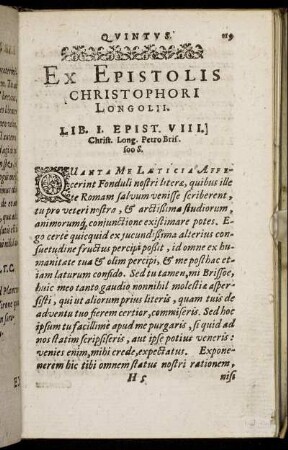 QVINTVS.
EX EPISTOLIS
CHRISTOPHORI
LONGOLII.
LIB. I. EPIST. VIII.]
Christ. Long. Petro Bris-
soo S.
QVANTA ME LÆTICIA AFFE-
cerint Fonduli nostri literæ, quibus ille
te Romam salvum venisse scriberent,
tu pro veteri nostra, & arctissima studiorum,
animorumq́; conjunctione existimare potes. E-
go certè quicquid ex jucundissima alterius con-
suetudine fructus percipi possit, id omne ex hu-
manitate tua & olim percepi, & me posthac et-
iam laturum confido. Sed tu tamen, mi Brissoe,
huic meo tanto gaudio nonnihil molestiæ asper-
sisti, qui ut aliorum prius literis, quam tuis de
adventu tuo fierem certior, commiseris. Sed hoc
ipsum tu facillimè apud me purgaris, si quid ad
nos statim scripseris, aut ipse potius veneris:
venies enim, mihi crede, expectatus. Expone-
nerem hic tibi omnem status nostri rationem,
H 5
nisi